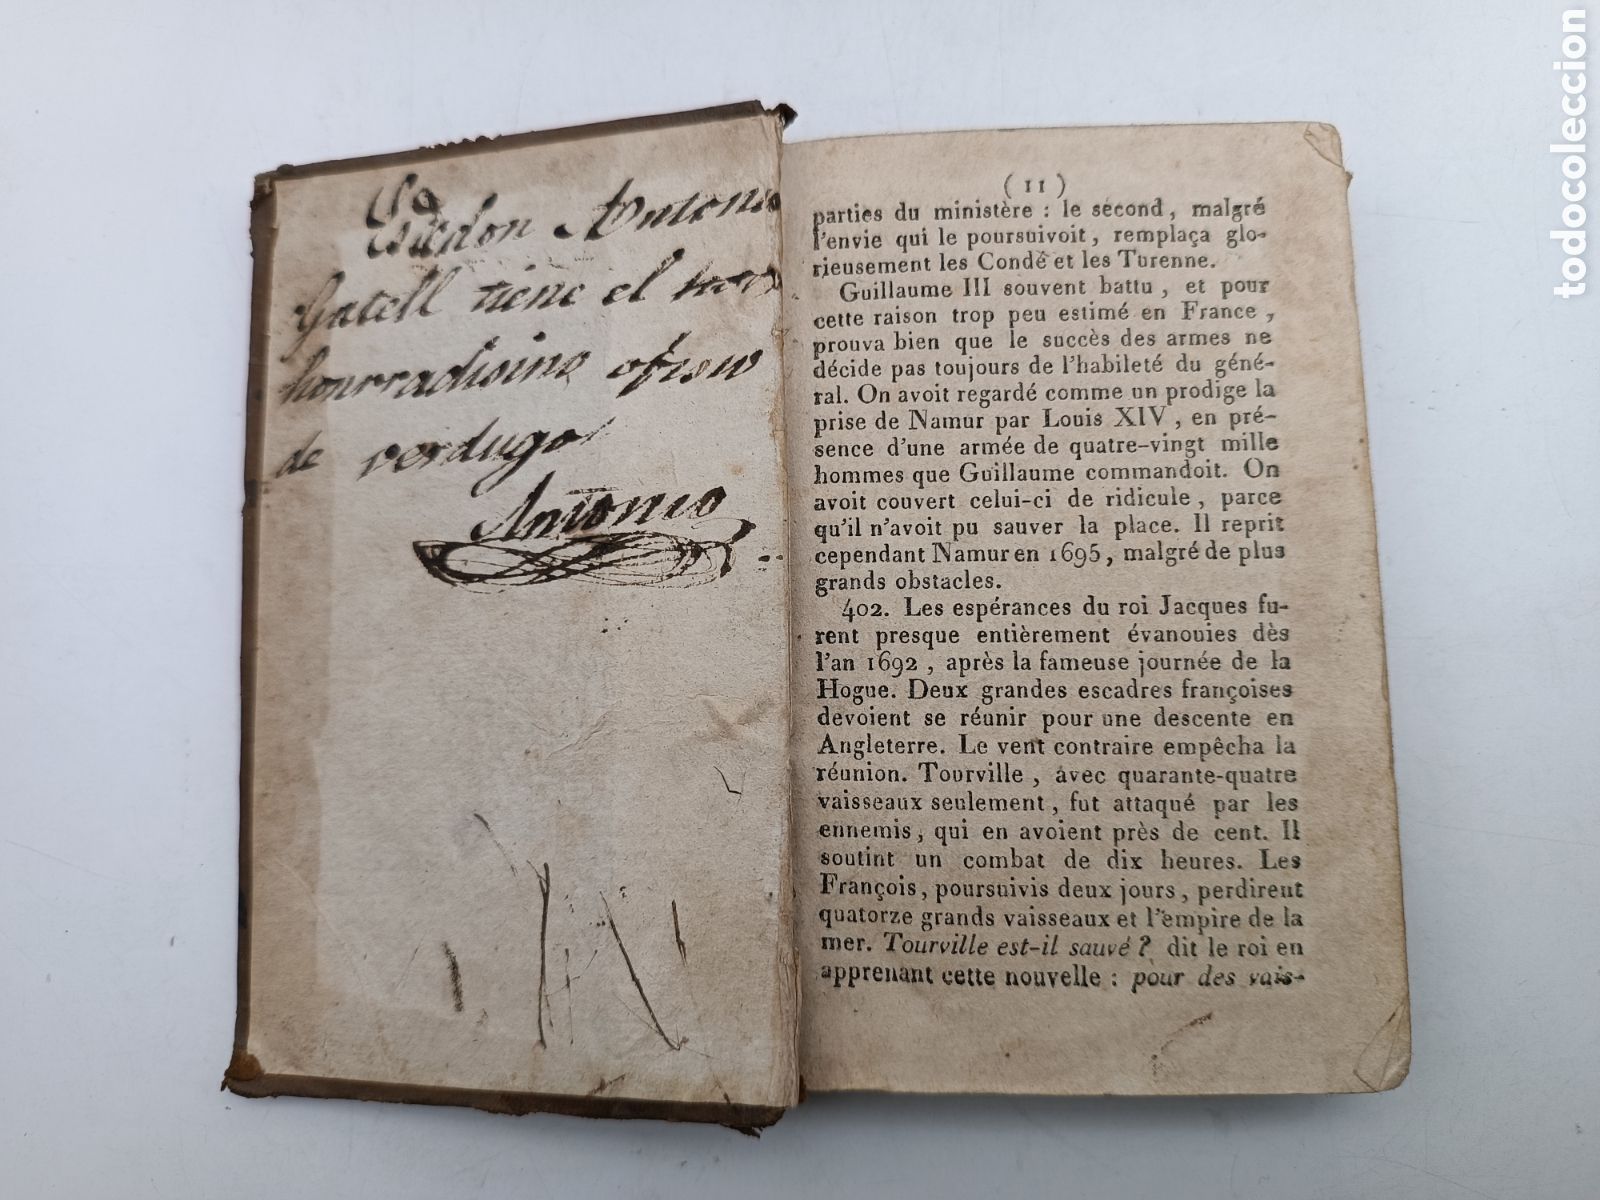 Antonio
Gatell tiene el
honrradisimo
de verdugo
Antonio
( 11 )
parties du ministère : le second, malgré
l'envie qui le poursuivoit, remplaça glo-
rieusement les Condé et les Turenne.
Guillaume III souvent battu, et pour
cette raison trop peu estimé en France,
prouva bien que le succès des armes ne
décide pas toujours de l'habileté du géné-
ral. On avoit regardé comme un prodige la
prise de Namur par Louis XIV, en pré-
sence d'une armée de quatre-vingt mille
hommes que Guillaume commandoit. On
avoit couvert celui-ci de ridicule, parce
qu'il n'avoit pu sauver la place. Il reprit
cependant Namur en 1695, malgré de plus
grands obstacles.
402. Les espérances du roi Jacques fu-
rent presque entièrement évanouies dès
l'an 1692, après la fameuse journée de la
Hogue. Deux grandes escadres françoises
devoient se réunir pour une descente en
Angleterre. Le vent contraire empêcha la
réunion. Tourville, avec quarante-quatre
vaisseaux seulement, fut attaqué par les
ennemis, qui en avoient près de cent. Il
soutint un combat de dix heures. Les
François, poursuivis deux jours, perdirent
quatorze grands vaisseaux et l'empire de la
mer. Tourville est-il sauvé ? dit le roi en
apprenant cette nouvelle : pour des vais-
todocoleccion